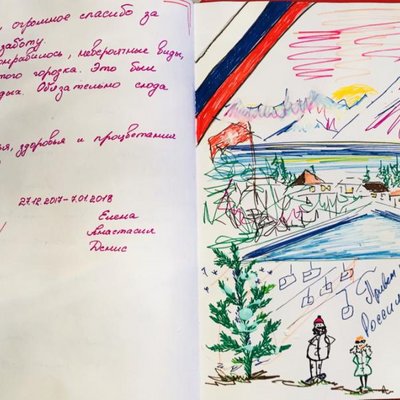 , огромное спасибо за
заботу.
онравилось, невероятные виды,
этого городка. Это был
дых. Обязательно сюда
ья, здоровья и процветания
27.12.2017-7.01.2018
Елена
Анастасия
Денис
Привет
России